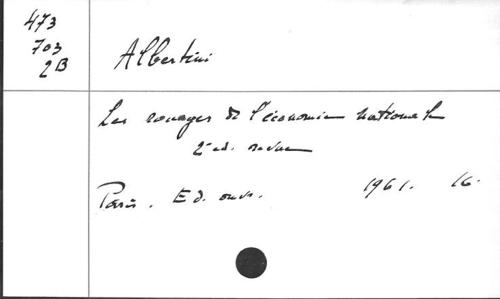 473
703
2B
Albertini
Les rouages de l'économie nationale
2e ed. revue
Paris. Ed. ouvr. 1961. 16.